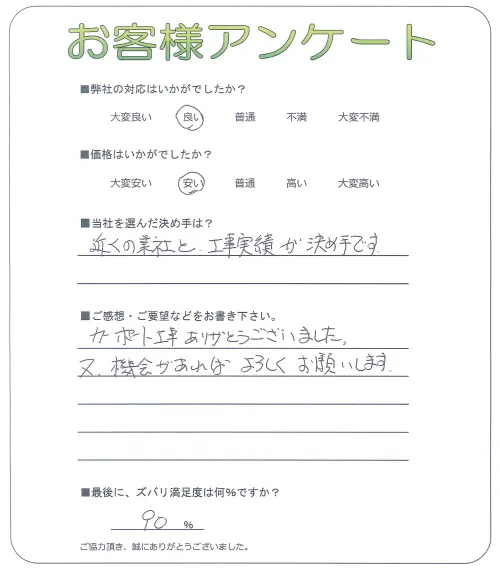 お客様アンケート
■弊社の対応はいかがでしたか？
大変良い 良い 普通 不満 大変不満
■価格はいかがでしたか？
大変安い 安い 普通 高い 大変高い
■当社を選んだ決め手は？
近くの業社と、工事実績が決め手です。
■ご感想・ご要望などをお書き下さい。
カーポート工事ありがとうございました。
又、機会があればよろしくお願いします。
■最後に、ズバリ満足度は何％ですか？
90 %
ご協力頂き、誠にありがとうございました。